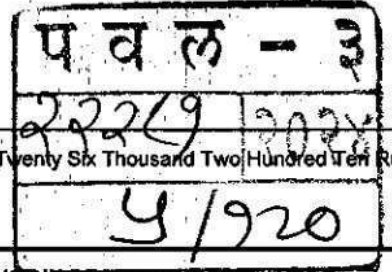 पवल - ३
२२२७ २०२४
Twenty Six Thousand Two Hundred Ten
५/१२०